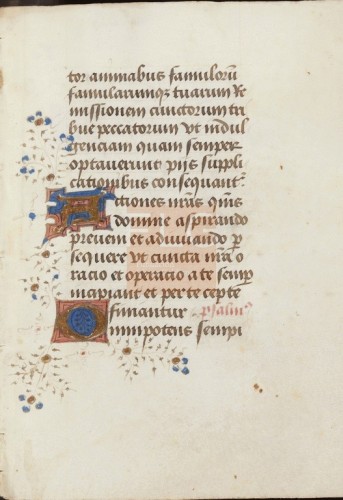 tor animabus famulorū
famularumqꝫ tuarum Re
missionem cunctorum tri
bue peccatorum Vt indul
genciam quam semper
optauerunt pijs suppli
cationibus consequant᷑
Actiones nr̄as qm̄s
domine aspirando
preueni et adiuuando ꝑ
sequere vt cuncta nr̄a o
racio et operacio a te semꝑ
incipiant et per te cepte
finiantur psalm
Omnipotens sempi